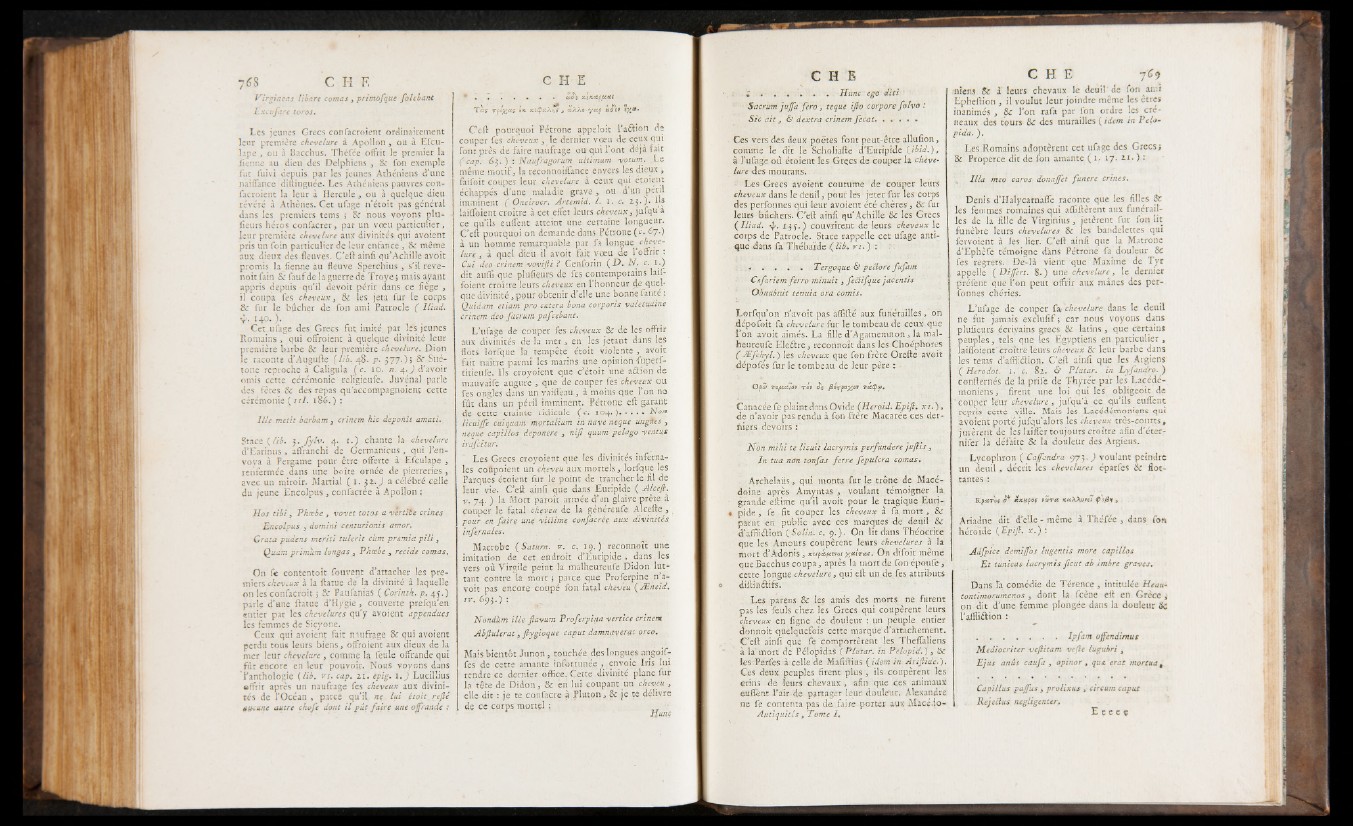 768 C H E
Virgineas libare comas, primosque solebant
Excusare toros.
Les jeunes Grecs consacroient ordinairement
leur première chevelure à Apollon, ou à Escu-
lape, ou à Bacchus. Thésée offrit le premier la
sienne au dieu des Delphiens, & son exemple
fut suivi depuis par les jeunes Athéniens d'une
naissance distinguée. Les Athéniens pauvres con-
sacroient la leur à Hercule, ou à quelque dieu
révéré à Athènes. Cet usage n'étoit pas général
dans les premiers tems ; & nous voyons plu-
sieurs héros consacrer, par un vœu particulier,
leur première chevelure aux divinités qui avoient
pris un soin particulier de leur enfance, & même
aux dieux des fleuves. C'est ainsi qu'Achille avoit
promis la sienne au fleuve Sperchius, s'il reve-
noit sain & sauf de la guerre de Troye; mais ayant
appris depuis qu'il devoit périr dans ce siège,
il coupa ses cheveux, & les jeta sur le corps
& sur le bûcher de son ami Patrocle ( Iliad.
ψ. 140. ).
Cet usage des Grecs fut imité par les jeunes
Romains, qui offroient à quelque divinité leur
première barbe & leur première chevelure. Dion
le raconte d'Auguste ( lib. 48. p. 577.); & Sué-
tone reproche à Caligula ( c. 10. n. 4. ) d'avoir
omis cette cérémonie religieuse. Juvénal parle
des fêtes & des repas qu'accompagnoient cette
cérémonie ( III. 186. ) :
Ille metit barbam, crinem hic deponit amati.
Stace ( lib. 3. sylv. 4. 1. ) chante la chevelure
d'Earinus, affranchi de Germanicus, qui l'en-
voya à Pergame pour être offerte à Esculape,
renfermée dans une boite ornée de pierreries,
avec un miroir. Martial ( 1. 32. ) a célébré celle
du jeune Encolpus, consacrée à Apollon :
Hos tibi, Phœbe, vovet totos a vertice crines
Encolpus, domini centurionis amor.
Grata pudens meriti tulerit cùm præmia pili,
Quàm primùm longas, Phœbe, recide comas.
On se contentoit souvent d'attacher les pre-
miers cheveux à la statue de la divinité à laquelle
on les consacroit ; & Pausanias ( Corinth. p. 45. )
parle d'une statue d'Hygie, couverte presqu'en
entier par les chevelures qu'y avoient appendues
les femmes de Sicyone.
Ceux qui avoient fait naufrage & qui avoient
perdu tous leurs biens, offroient aux dieux de la
mer leur chevelure, comme la seule offrande qui
fût encore en leur pouvoir. Nous voyons dans
l'anthologie ( lib. VI. cap. 21. epig. 1. ) Lucillius
offrir après un naufrage ses cheveux aux divini-
tés de l'Océan, parce qu'il ne lui étoit resté
aucune autre chose dont il pût faire une offrande :
C H E
C'est pourquoi Pétrone appeloit l'action de
couper ses cheveux, le dernier vœu de ceux qui
sont près de faire naufrage ou qui l'ont déjà fait
( cap. 63. ) : Naufragorum ultimum votum. Le
même motif, la reconnoissance envers les dieux,
faisoit couper leur chevelure à ceux qui étoient
échappés d'une maladie grave, ou d'un péril
imminent ( Oneirocr. Artemid. l. 1. c. 23. ). Ils
laissoient croître à cet effet leurs cheveux, jusqu'à
ce qu'ils eussent atteint une certaine longueur.
C'est pourquoi on demande dans Pétrone (c. 67.)
à un homme remarquable par sa longue cheve-
lure, à quel dieu il avoit fait vœu de l'offrir :
Cui deo crinem vovisti ? Censorin ( D. N. c. 1. )
dit aussi que plusieurs de ses contemporains lais-
soient croître leurs cheveux en l'honneur de quel-
que divinité, pour obtenir d'elle une bonne santé :
Quidam etiam pro cætera bona corporis valetudine
crinem deo sacrum pascebant.
L'usage de couper ses cheveux & de les offrir
aux divinités de la mer, en les jetant dans les
flots lorsque la tempête étoit violente, avoit
fait naître parmi les marins une opinion supersti-
titieuse. Ils croyoient que c'étoit une action de
mauvaise augure, que de couper ses cheveux ou
ses ongles dans un vaisseau, à moins que l'on ne
fût dans un péril imminent. Pétrone est garant
de cette crainte ridicule ( c. 104. ). . . . . Non
licuisse cuiquam mortalium in nave neque ungues,
neque capillos deponere, nisi quum pelago ventus
irascitur.
Les Grecs croyoient que les divinités inferna-
les coupoient un cheveu aux mortels, lorsque les
Parques étoient sur le point de trancher le fil de
leur vie. C'est ainsi que dans Euripide ( Alcest.
v. 74. ) la Mort paroît armée d'un glaive prête à
couper le fatal cheveu de la généreuse Alceste,
pour en faire une victime consacrée aux divinités
infernales.
Macrobe ( Saturn. v. c. 19. ) reconnoît une
imitation de cet endroit d'Euripide, dans les
vers où Virgile peint la malheureuse Didon lut-
tant contre la mort ; parce que Proserpine n'a-
voit pas encore coupé son fatal cheveu ( Æneid.
IV. 693. ) :
Nondùm illi flavum Proserpina vertice crinem
Abstulerat, stygioque caput damnaverat orco.
Mais bientôt Junon, touchée des longues angois-
ses de cette amante infortunée, envoie Iris lui
rendre ce dernier office. Cette divinité plane sur
la tête de Didon, & en lui coupant un cheveu,
elle dit : je te consacre à Pluton, & je te délivre
de ce corps mortel :
Hunc
C H E
. . . . . . . Hunc ego diti
Sacrum jussa fero, teque isto corpore solvo :
Sic ait, & dextra crinem secat. . . . . .
Ces vers des deux poëtes font peut-être allusion,
comme le dit le Scholiaste d'Euripide ( ibid. ),
à l'usage où étoient les Grecs de couper la cheve-
lure des mourans.
Les Grecs avoient coutume de couper leurs
cheveux dans le deuil, pour les jeter sur les corps
des personnes qui leur avoient été chères, & sur
leurs bûchers. C'est ainsi qu'Achille & les Grecs
( Iliad. ψ. 135. ) couvrirent de leurs cheveux le
corps de Patrocle. Stace rappelle cet usage anti-
que dans sa Thébaïde ( lib. VI. ) :
. . . . . Tergoque & pectore fusam
Cæsariem ferro minuit, sectisque jacentis
Obnubuit tenuia ora comis.
Lorsqu'on n'avoit pas assisté aux funérailles, on
déposoit sa chevelure sur le tombeau de ceux que
l'on avoit aimés. La fille d'Agamemnon, la mal-
heureuse Electre, reconnoît dans les Choéphores
( Æschyl. ) les cheveux que son frère Oreste avoit
déposés sur le tombeau de leur père :
Canacée se plaint dans Ovide (Heroid. Epist. XI. ),
de n'avoir pas rendu à son frère Macarée ces der-
niers devoirs :
Non mihi te licuit lacrymis perfundere justis,
In tua non tonsas ferre sepulcra comas.
Archelaüs, qui monta sur le trône de Macé-
doine après Amyntas, voulant témoigner la
grande estime qu'il avoit pour le tragique Euri-
pide, se fit couper les cheveux à sa mort, &
parut en public avec ces marques de deuil &
d'affliction ( Solin. c. 9. ). On lit dans Théocrite
que les Amours coupèrent leurs chevelures à la
mort d'Adonis, On disoit même
que Bacchus coupa, après la mort de son épouse,
cette longue chevelure, qui est un de ses attributs
distinctifs.
Les parens & les amis des morts ne furent
pas les seuls chez les Grecs qui coupèrent leurs
cheveux en signe de douleur : un peuple entier
donnoit quelquefois cette marque d'attachement.
C'est ainsi que se comportèrent les Thessaliens
à la mort de Pélopidas ( Plutar. in Pelopid. ), &
les Perses à celle de Masistius ( idem in Aristiac. ).
Ces deux peuples firent plus, ils coupèrent les
crins de leurs chevaux, afin que ces animaux
eussent l'air de partager leur douleur. Alexandre
ne se contenta pas de faire porter aux Macédo-
Antiquités, Tome I.
C H E 769
niens & à leurs chevaux le deuil de son ami
Ephestion, il voulut leur joindre même les êtres
inanimés, & l'on rasa par son ordre les cré-
neaux des tours & des murailles ( idem in Pelo-
pida. ).
Les Romains adoptèrent cet usage des Grecs ;
& Properce dit de son amante ( 1. 17. 21. ) :
Illa meo caros donasset funere crines.
Denis d'Halycarnasse raconte que les filles &
les femmes romaines qui assistèrent aux funérail-
les de la fille de Virginius, jetèrent sur son lit
funèbre leurs chevelures & les bandelettes qui
servoient à les lier. C'est ainsi que la Matrone
d'Ephèse témoigne dans Pétrone sa douleur &
ses regrets. De-là vient que Maxime de Tyr
appelle ( Dissert. 8. ) une chevelure, le dernier
présent que l'on peut offrir aux mânes des per-
sonnes chéries.
L'usage de couper sa chevelure dans le deuil
ne fut jamais exclusif ; car nous voyons dans
plusieurs écrivains grecs & latins, que certains
peuples, tels que les Egyptiens en particulier,
laissoient croître leurs cheveux & leur barbe dans
les tems d'affliction. C'est ainsi que les Argiens
( Herodot. 1. c. 82. & Plutar. in Lysandro. )
consternés de la prise de Thyrée par les Lacédé-
moniens, firent une loi qui les obligeoit de
couper leur chevelure, jusqu'à ce qu'ils eussent
repris cette ville. Mais les Lacédémoniens qui
avoient porté jusqu'alors les cheveux très-courts,
jurèrent de les laisser toujours croître afin d'éter-
niser la défaite & la douleur des Argiens.
Lycophron ( Cassandra 973. ) voulant peindre
un deuil, décrit les chevelures éparses & flot-
tantes :
Ariadne dit d'elle-même à Thésée, dans son
héroïde ( Epist. X. ) :
Adspice demissos lugentis more capillos
Et tunicas lacrymis sicut ab imbre graves.
Dans la comédie de Térence, intitulée Heau-
tontimorumenos, dont la scène est en Grèce,
on dit d'une femme plongée dans la douleur &
l'affliction :
. . . . . . . Ipsam offendimus
Mediocriter vestitam veste lugubri,
Ejus anûs causâ, opinor, quæ erat mortua,
. . . . . . . . . . . .
Capillus passus, prolixus, circum caput
Rejectus negligenter.
E e e e e